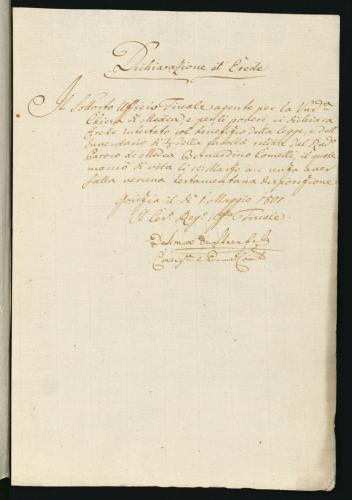 Dichiarazione d' Erede
Il Sottosto Officio Fiscale agente per la Vnda
Chiesa di Medea, e per li poveri, si dichiara
Erede intestato col beneficio della legge, e dell'
Inventario di della facoltà relitta dal Redo
Paroco di Medea Bernardino Cometti, il quale
mancò di vita li 17. Marzo a.c. senza aver
fatta veruna testamentaria disposizione
Gorizia il di 1. Maggio 1801
Fiscale